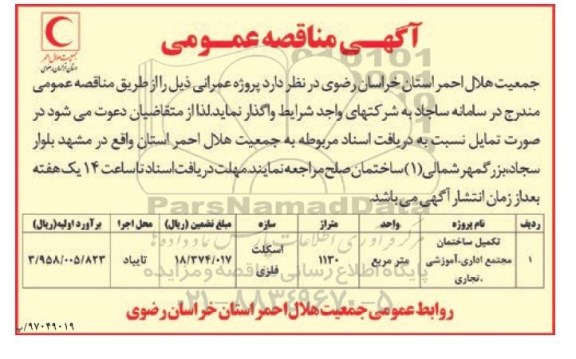 آگهی مناقصه عمومی
جمعیت هلال احمر
استان خراسان رضوی
جمعیت هلال احمر استان خراسان رضوی در نظر دارد پروژه عمرانی ذیل را از طریق مناقصه عمومی
مندرج در سامانه ساجاد به شرکتهای واجد شرایط واگذار نماید. لذا از متقاضیان دعوت می شود در
صورت تمایل نسبت به دریافت اسناد مربوطه به جمعیت هلال احمر استان واقع در مشهد بلوار
سجاد، بزرگمهر شمالی (۱) ساختمان صلح مراجعه نمایند. مهلت دریافت اسناد تا ساعت ۱۴ یک هفته
بعد از زمان انتشار آگهی می باشد.
ردیف نام پروژه واحد متراژ سازه مبلغ تضمین (ریال) محل اجرا برآورد اولیه (ریال)
۱ تکمیل ساختمان مجتمع اداری، آموزشی ،تجاری. متر مربع ۱۱۳۰ اسکلت فلزی ۱۸/۳۷۴/۰۱۷ تایباد ۳/۹۵۸/۰۰۵/۸۲۳
روابط عمومی جمعیت هلال احمر استان خراسان رضوی
۹۷۰۴۹۰۱۹/پ
ParsNamadData
پایگاه اطلاع رسانی مناقصه و مزایده
۰۲۱-۸۸۳۴۹۶۷۰-۵